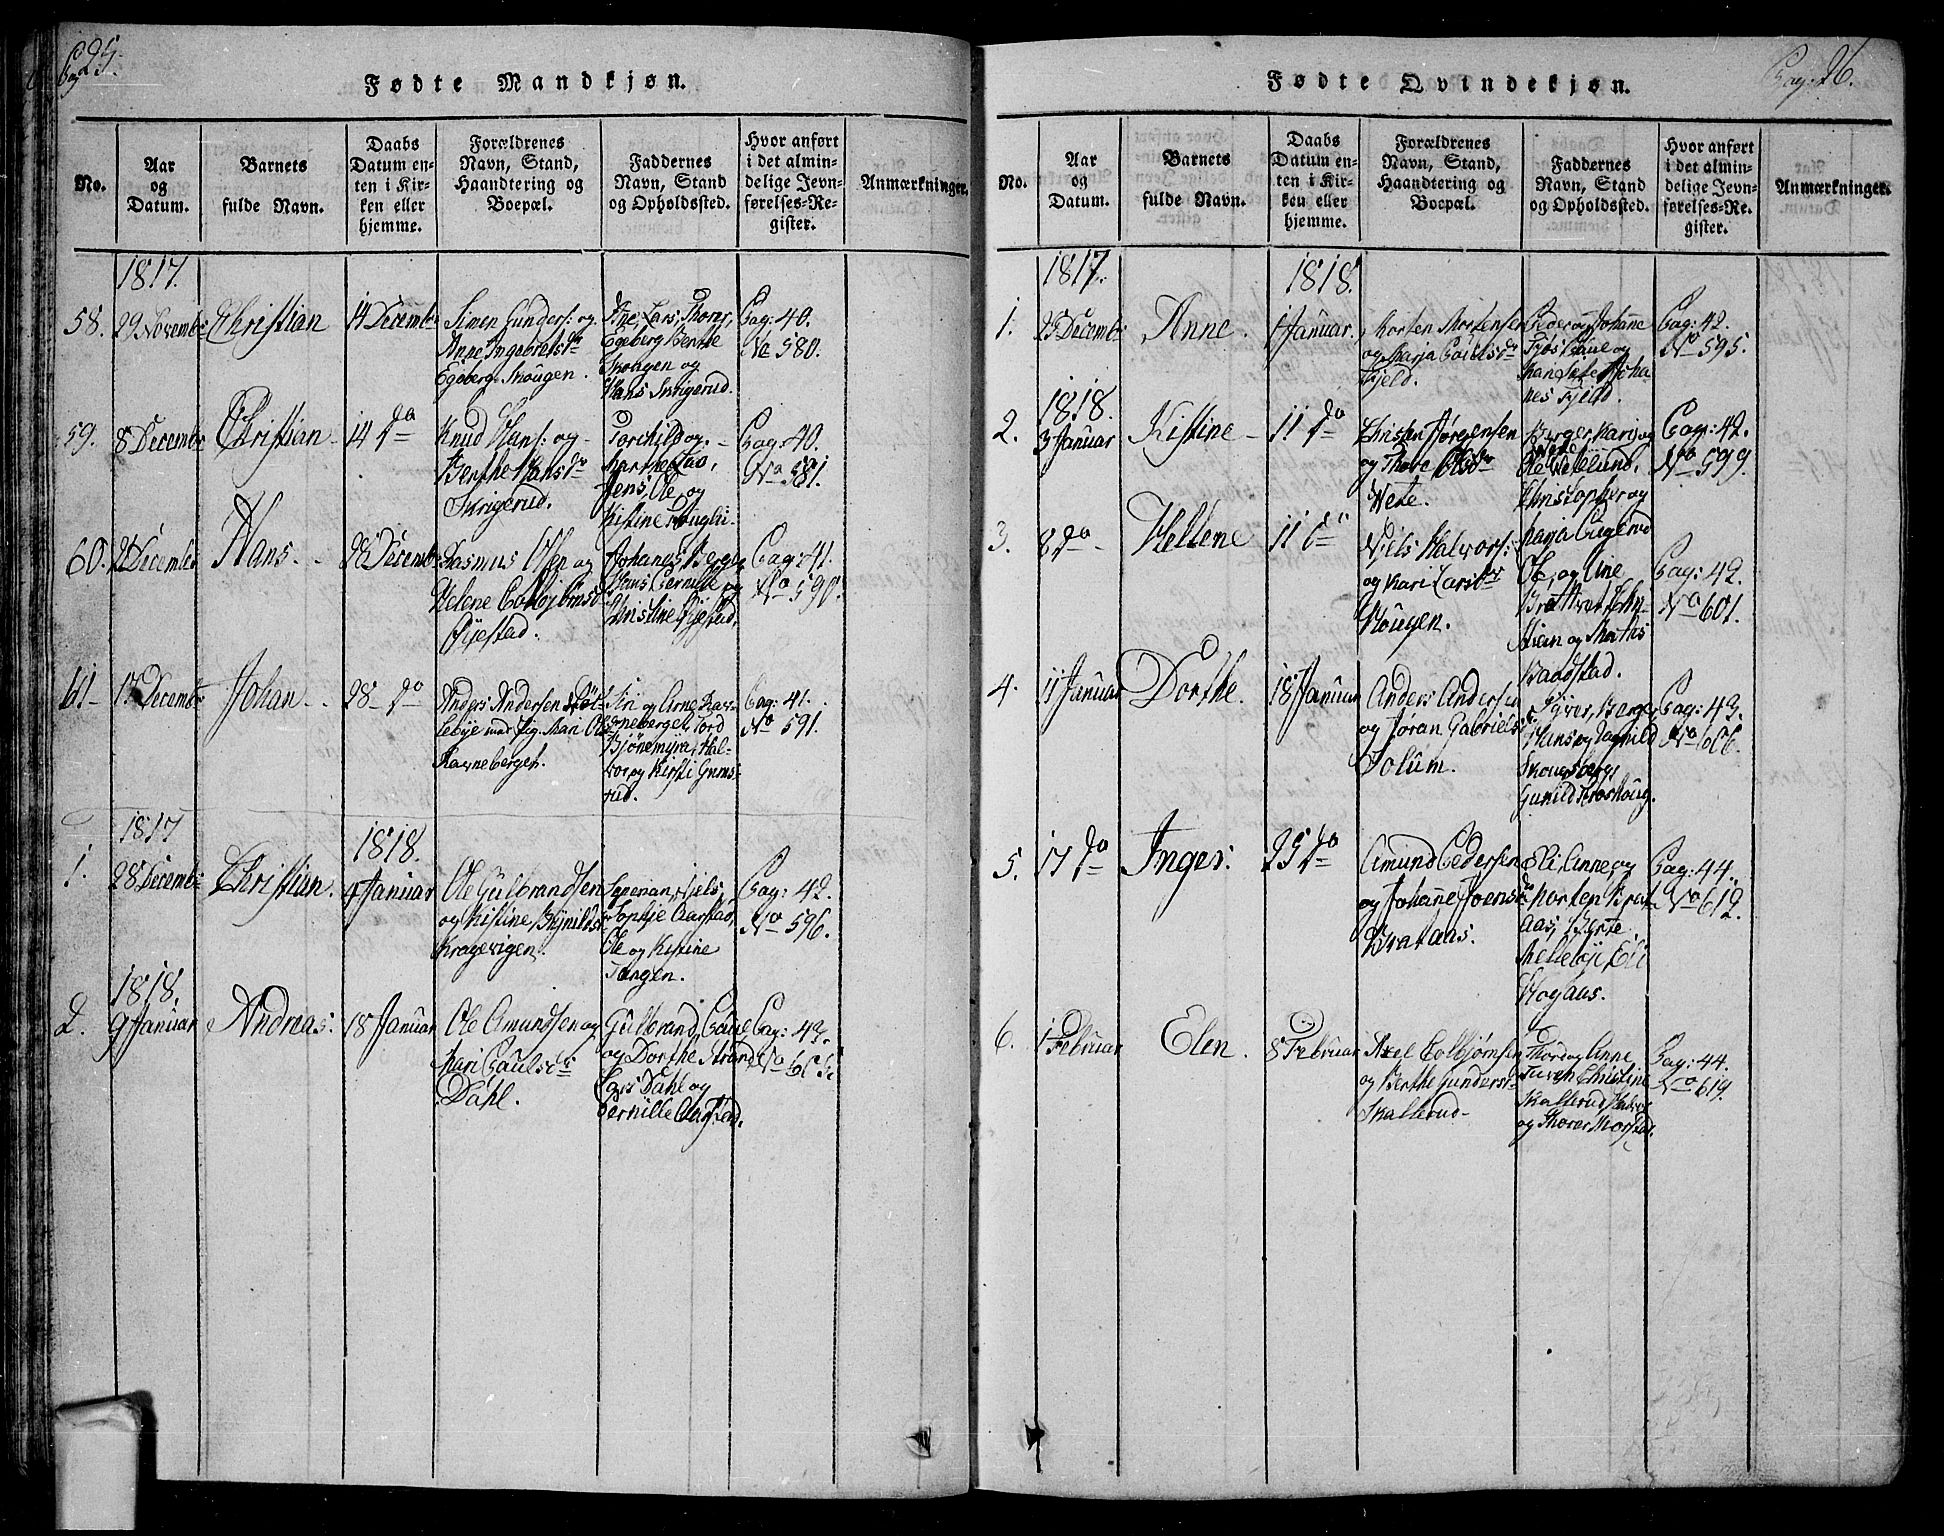 Pag 25.
Fødte Mandkjøn.
No.
Aar
og
Datum.
Barnets
fulde Navn.
Daabs
Datum en-
ten i Kir-
ken eller
hjemme.
Forældrenes
Navn, Stand,
Haandtering og
Boepæl.
Faddernes
Navn, Stand
og Opholdssted.
Hvor anført
i det almin-
delige Jevn-
førelses-Re-
gister.
Anmærkninger.
1817.
58.
29 Novembr
Christian
14 Decembr
Simen Gunders: og
Anne Ingebretsdr
Egeberg-Skougen.
Ane, Lars, Thorer,
Egeberg, Berthe
Skougen og
Hans Skrigerud.
Pag: 40.
No 580.
59.
8 Decembr
Christian
14 do
Knud Hans: og
Berthe Hansdr
Skrigerud.
Torchild og
Jens, Ole og
Pag: 40.
No 581.
60.
21 Decembr
Hans
28 Decembr
Rasmus Olsen og
Helene Colbjørnsd
Øyestad.
Johanes, Berger
Hans, Pernille og
Christine Øyestad.
Pag: 41.
No 590.
61
17 Decembr
Johan
28 do
Anders Andersen
med Pig. Mari Ols
Ravnebergen.
Siri og Arne Rav-
nebergel, Tord
Bjönemyra, Hal-
vor og Kirsti Grims-
rud.
Pag: 41.
No 591.
1817
1.
28 Decembr
Christian.
1818.
4 Januar
Ole Gulbrandsen
og Kistine Bynilds
Kragevigen.
Niels,
Sophje Aarstad,
Ole og Kistine
Tangen.
Pag: 42.
No 596.
1818.
2.
9 Januar
Andreas.
18 Januar
Ole Amundsen og
Mari Paulsdr
Dahl.
Gulbrand, Paul
og Dorthe Strand
Lars Dahl og
Pernille Aarstad.
Pag: 43.
Pag: 26.
Fødte Qvindekjøn.
No.
Aar
og
Datum.
Barnets
fulde Navn.
Daabs
Datum en-
ten i Kir-
ken eller
hjemme.
Forældrenes
Navn, Stand,
Haandtering og
Boepæl.
Faddernes
Navn, Stand
og Opholdssted.
Hvor anført
i det almin-
delige Jevn-
førelses-Re-
gister.
Anmærkninger.
1817.
1.
25 Decembr
Anne.
1818.
1 Januar.
Morten Mortensen
og Marja Poulsdr
Fjeld.
Peder og Johane
Paul og
Joha-
nes Fjeld.
Pag: 42.
No 595.
1818.
2.
3 Januar
Kistine
11 do
Christen Jørgensen
og Thore Olsdr
Wete.
Berger, Kari og
Christopher og
Pag: 42.
No 599.
3.
8 do
Hellene
11 do
Niels Halvors:
og Kari Larsdr
Hougen.
Ole og Line
Pag: 42.
No 601.
4.
11 Januar
Dorthe.
18 Januar
Anders Anders
og Jøran Gabriels
Solum.
Syver, Berger
Hans og Ragnild
Skougsberg,
Pag: 43.
No 606.
5.
17 do
Inger.
25 do
Amund Pedersen
og Johane Joensd
Brataas.
Eli, Anne, og
Morten Brat-
aas, Berte
Eli
Hogaas.
Pag: 44.
No 612.
6.
1 Februar
Elen.
8 Februar
Axel Colbjørnsen
og Berthe Gundersd
Skallerud
Thord og Anne
Christine
Skallerud, Halvor
og Thorer Morstad.
Pag: 44.
No 619.